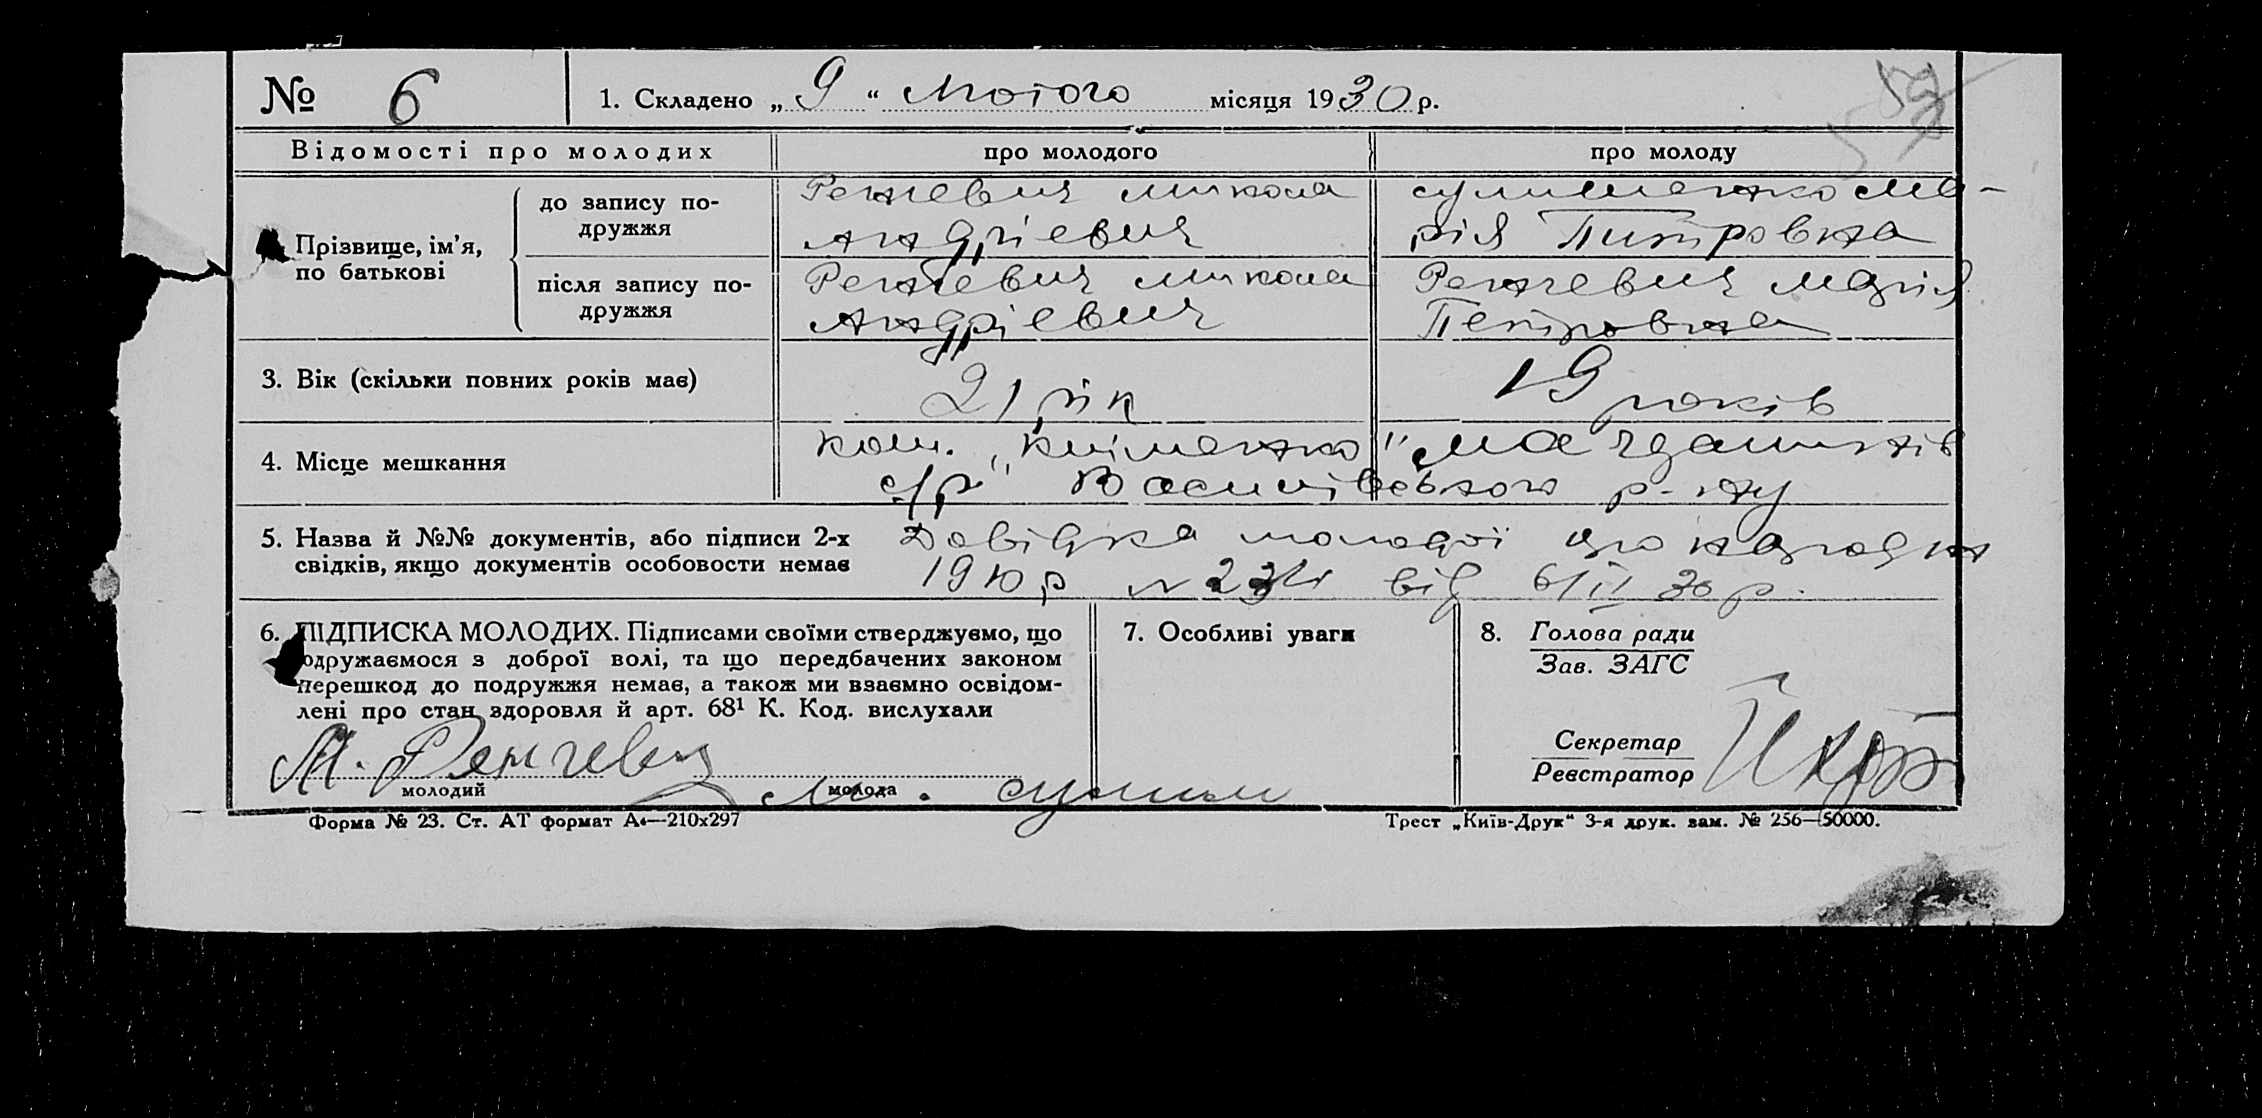 № 6
1. Складено „ 9 “ Лютого місяця 1930 р.
Відомості про молодих
про молодого
про молоду
Прізвище, ім'я,
по батькові
до запису по-
дружжя
Ренгевич микола
Андрієвич
сулименко Ма-
рія Питровна
після запису по-
дружжя
Ренгевич микола
Андрієвич
Ренгевич марія
Петровна
3. Вік (скільки повних років має)
21 рік
19 років
4. Місце мешкання
ком. „Кліменко"
с/р Василівського р-ну
5. Назва й №№ документів, або підписи 2-х
свідків, якщо документів особовости немає
Довідка молодої
від 6/II 30 р.
6. ПІДПИСКА МОЛОДИХ. Підписами своїми стверджуємо, що
одружаємося з доброї волі, та що передбачених законом
перешкод до подружжя немає, а також ми взаємно освідом-
лені про стан здоровля й арт. 68¹ К. Код. вислухали
М. Ренгевич
молодий
молода
М. сулим
7. Особливі уваги
8. Голова ради
Зав. ЗАГС
Секретар
Реєстратор
Форма № 23. Ст. АТ формат А₄—210x297
Трест „Київ-Друк“ 3-я друк. зам. № 256—50000.